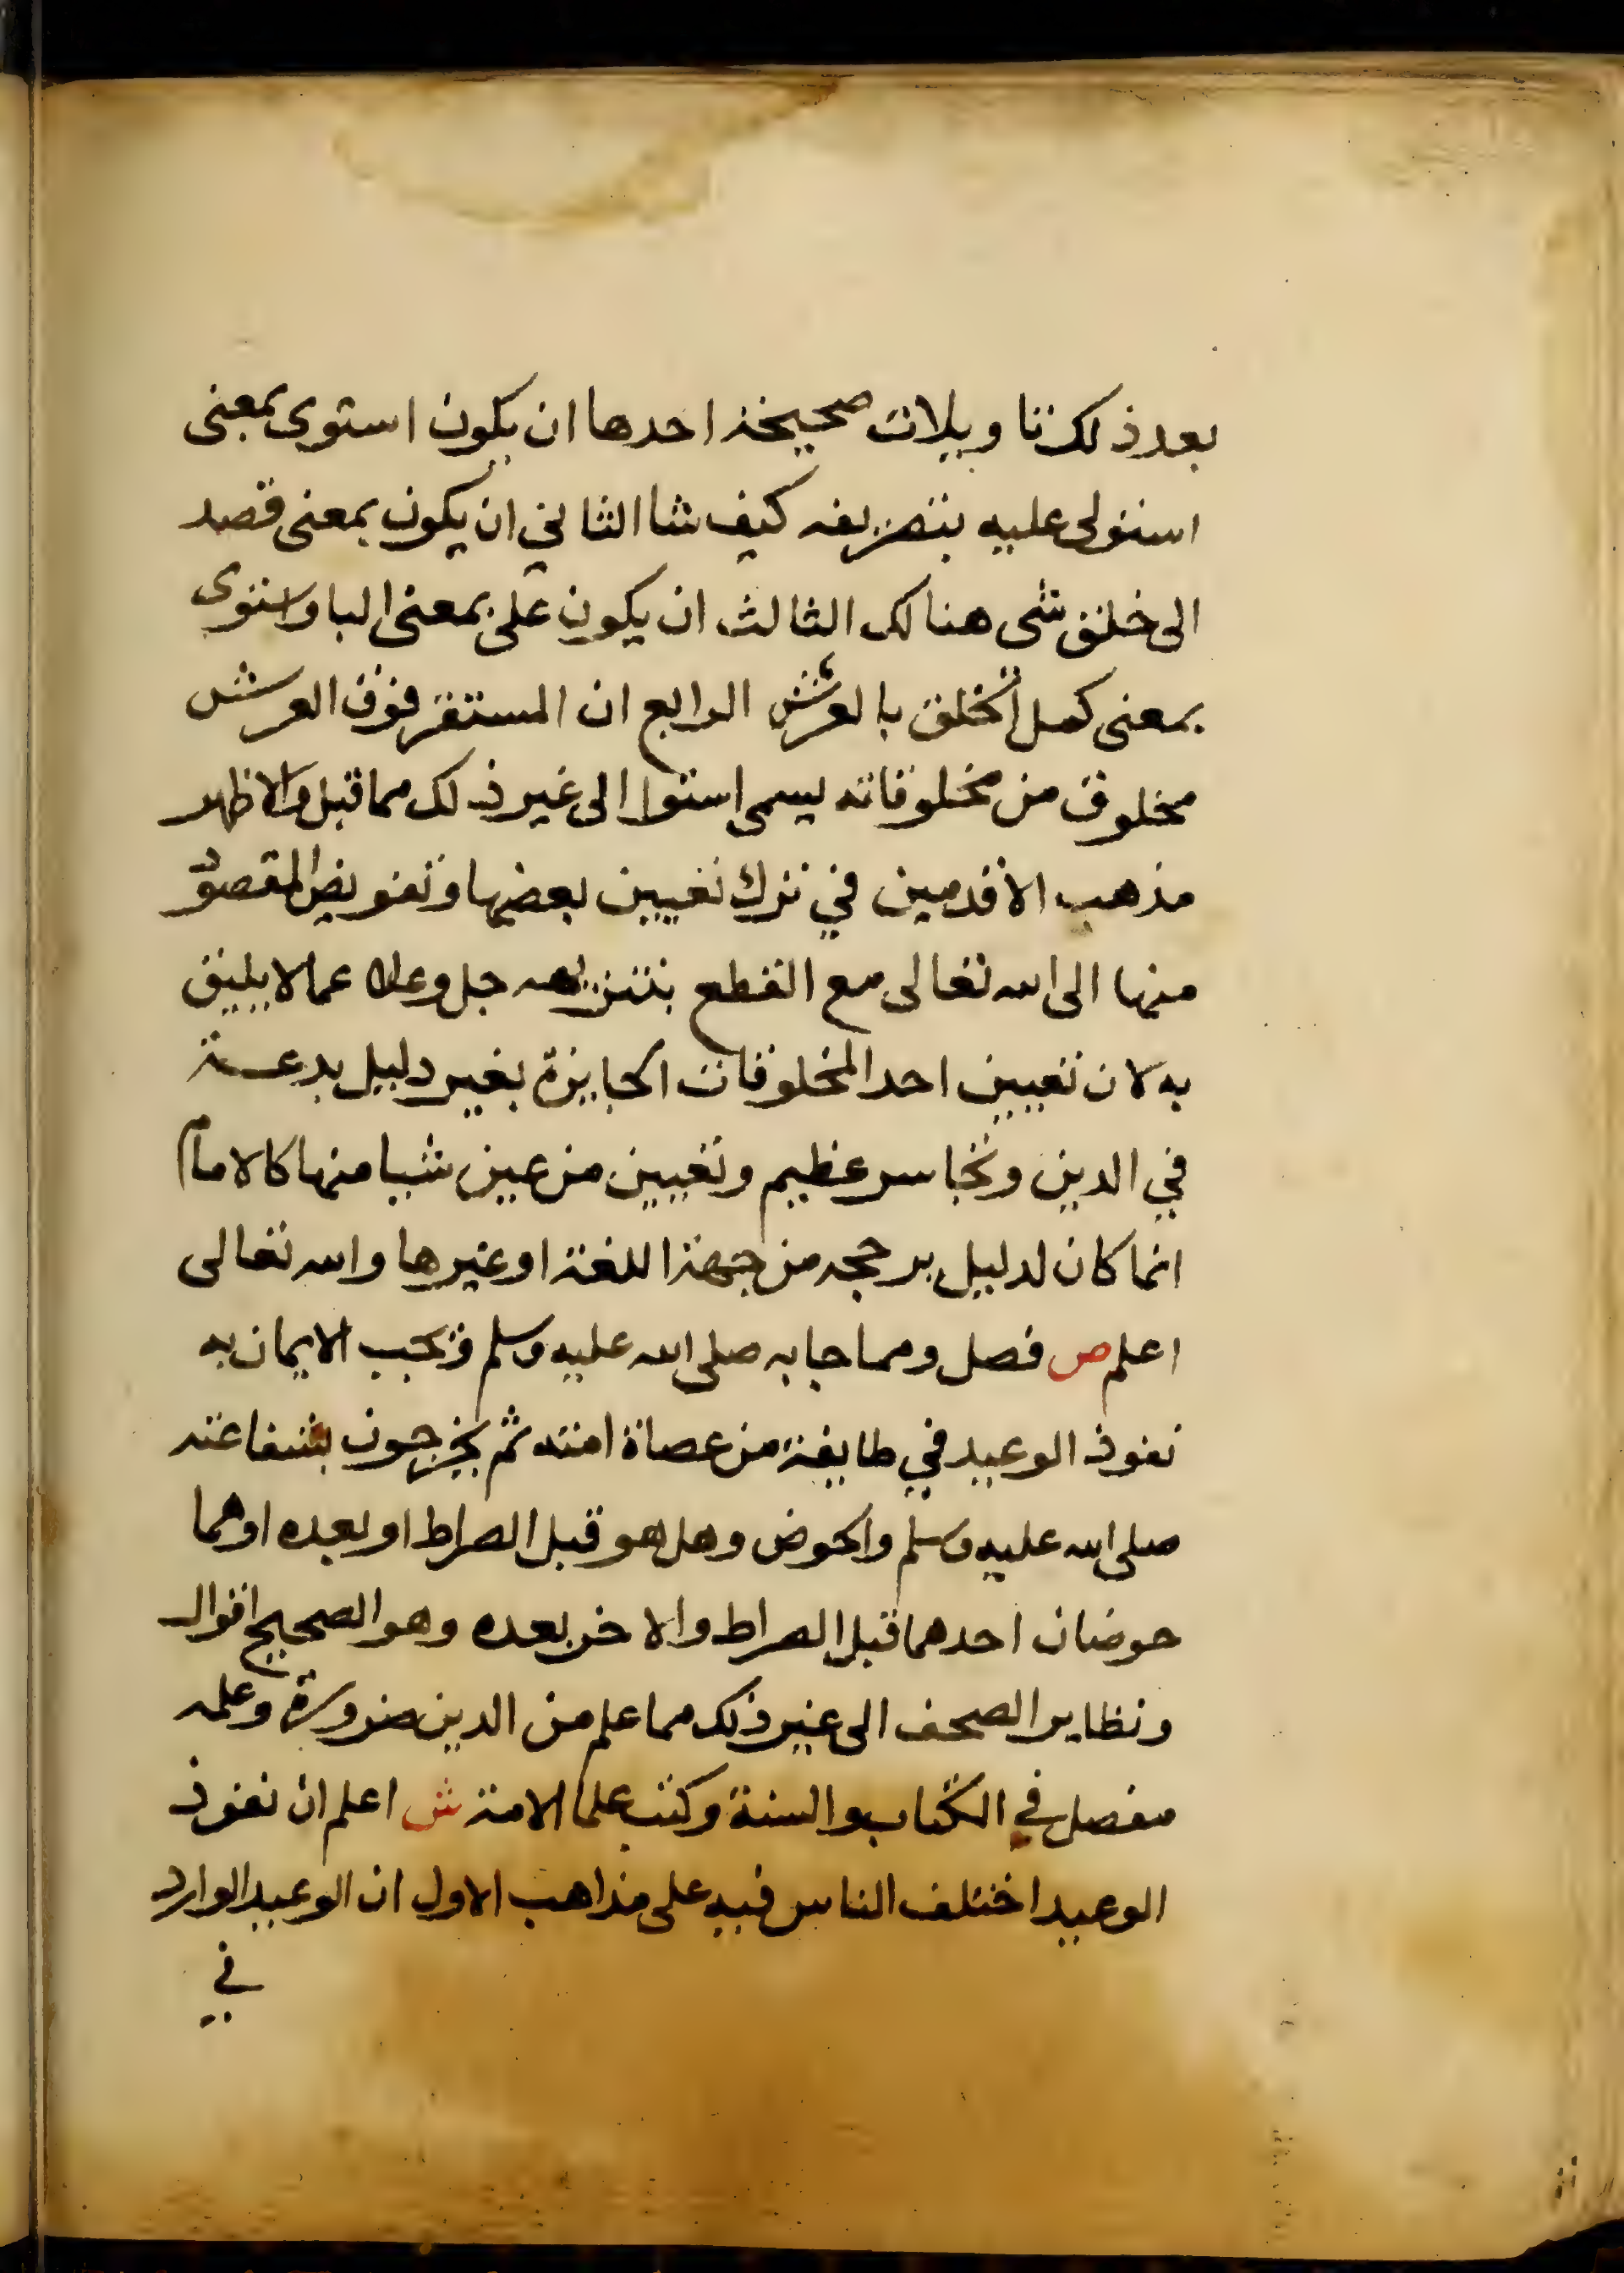 بعد ذلك تاويلات صحيحة احدها ان يكون استوى بمعنى
استولى عليه بتصريفه كيف شا الثاني ان يكون بمعنى قصد
الى خلق شى هنالك الثالث ان يكون على بمعنى البا واستوى
بمعنى كمل الخلق بالعرش الرابع ان المستقر فوق العرش
مخلوق من مخلوقاته يسمى استوا الى غير ذلك مما قيل والاظهر
مذهب الاقدمين في ترك تعيين بعضها وتفويض المقصود
منها الى الله تعالى مع القطع بتنزيهه جل وعلا عما لا يليق
به لان تعيين احد المخلوقات الجايزة بغير دليل بدعة
في الدين وتجاسر عظيم وتعيين من عين شيا منها كالامام
انما كان لدليل برجحه من جهة اللغة او غيرها والله تعالى
اعلم ص فصل ومما جا به صلى الله عليه وسلم ويجب الايمان به
نفوذ الوعيد في طايفة من عصاة امته ثم يخرجون بشفاعته
صلى الله عليه وسلم والحوض وهل هو قبل الصراط او بعده او هما
حوضان احدهما قبل الصراط والاخر بعده وهو الصحيح اقوال
وتطاير الصحف الى غير ذلك مما علم من الدين ضرورة وعلمه
مفصل في الكتاب والسنة وكتب علما الامة ش اعلم ان نفوذ
الوعيد اختلف الناس فيه على مذاهب الاول ان الوعيد الوارد
في